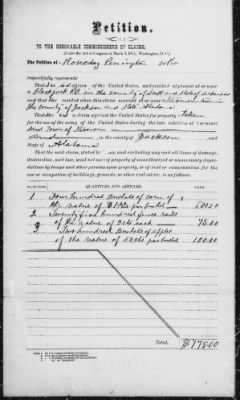 Petition.
TO THE HONORABLE COMMISSIONERS OF CLAIMS,
(Under the Act of Congress of March 3, 1871, Washington, D. C.)
The Petition of
respectfully represents:
That he is a citizen of the United States, and resided at or near
Blackjack P.O. in the county of Scott and State of Arkansas
and that he resided when this claim accrued at or near
the county of Jackson and State Alabama
That he has a claim against the United States for property taken
for the use of the army of the United States during the late rebellion at or near
Town of
in the county of Jackson and
State of Alabama
That the said claim, stated by items, and excluding any and all items of damage,
destruction, and loss, (and not use,) of property of unauthorized or unnecessary depre-
dations by troops and other persons upon property, or of rent or compensation for the
use or occupation of buildings, grounds, or other real estate, is as follows:
QUANTITIES AND ARTICLES.
1 Four hundred Bushels of corn of
the value of per bushel 600.00
2 Twenty five hundred fence rails
of the value of 3 cts each 75.00
3 Two hundred Bushels of apples
of the value of 50 cts per bushel 100.00
Total, $775.00